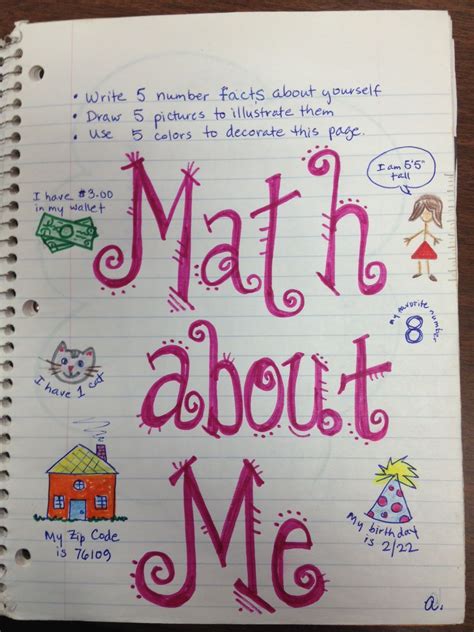 • Write 5 number facts about yourself
• Draw 5 pictures to illustrate them
• Use 5 colors to decorate this page.
I have $3.00
in my wallet
I am 5'5"
tall
Math
my favorite number
8
about
I have 1 cat
My Zip Code
is 76109
My birthday
is 2/22
Me
a.